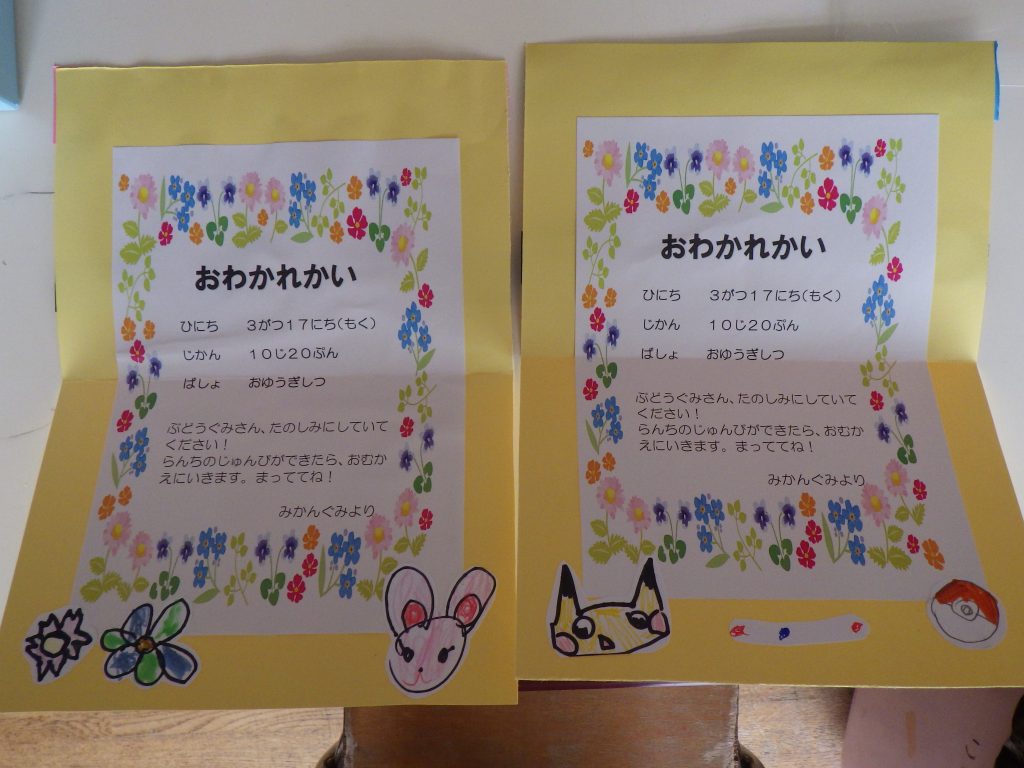 おわかれかい
ひにち　３がつ１７にち（もく）
じかん　１０じ２０ぷん
ばしょ　おゆうぎしつ
ぶどうぐみさん、たのしみにしていて
ください！
らんちのじゅんびができたら、おむか
えにいきます。まっててね！
みかんぐみより
おわかれかい
ひにち　３がつ１７にち（もく）
じかん　１０じ２０ぷん
ばしょ　おゆうぎしつ
ぶどうぐみさん、たのしみにしていて
ください！
らんちのじゅんびができたら、おむか
えにいきます。まっててね！
みかんぐみより